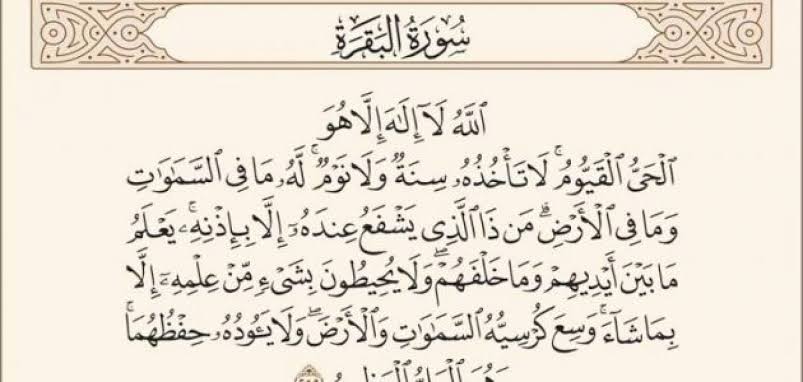 سُورَةُ البَقَرَةِ
ٱللَّهُ لَآ إِلَـٰهَ إِلَّا هُوَ
ٱلْحَىُّ ٱلْقَيُّومُ ۚ لَا تَأْخُذُهُۥ سِنَةٌ وَلَا نَوْمٌ ۚ لَّهُۥ مَا فِى ٱلسَّمَـٰوَٰتِ
وَمَا فِى ٱلْأَرْضِ ۗ مَن ذَا ٱلَّذِى يَشْفَعُ عِندَهُۥٓ إِلَّا بِإِذْنِهِۦ ۚ يَعْلَمُ
مَا بَيْنَ أَيْدِيهِمْ وَمَا خَلْفَهُمْ ۖ وَلَا يُحِيطُونَ بِشَىْءٍ مِّنْ عِلْمِهِۦٓ إِلَّا
بِمَا شَآءَ ۚ وَسِعَ كُرْسِيُّهُ ٱلسَّمَـٰوَٰتِ وَٱلْأَرْضَ ۖ وَلَا يَـُٔودُهُۥ حِفْظُهُمَا ۚ